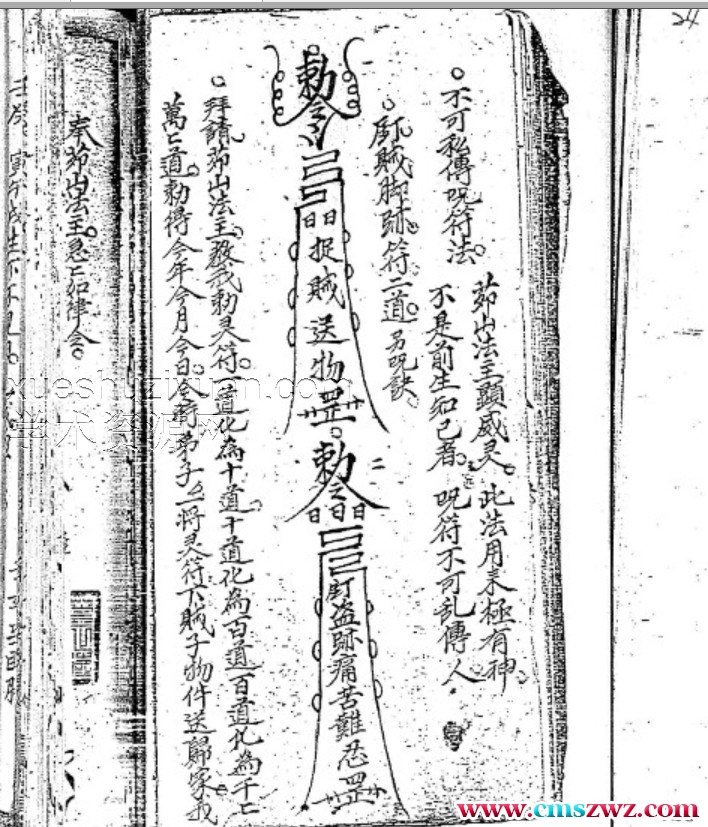 24
不可私傳呪符法。
茆山法主顯威灵。此法用來極有神。
不是前生知己者。呪符不可乱傳人
賊脚跡符二道。另呪訣。
勅令
晶
捉賊送物罡
勅令
晶
釘盗跡痛苦難忍罡
拜請茆山法主教我勅灵符。一道化為十道十道化為百道百道化為千亡
萬亡道。勅得今年今月今日今時弟子厶将灵符下賊子物件送歸家我
奉茆山法主。急亡如律令。
xueshuziyuan.com
学术资源网
www.cmszwz.com